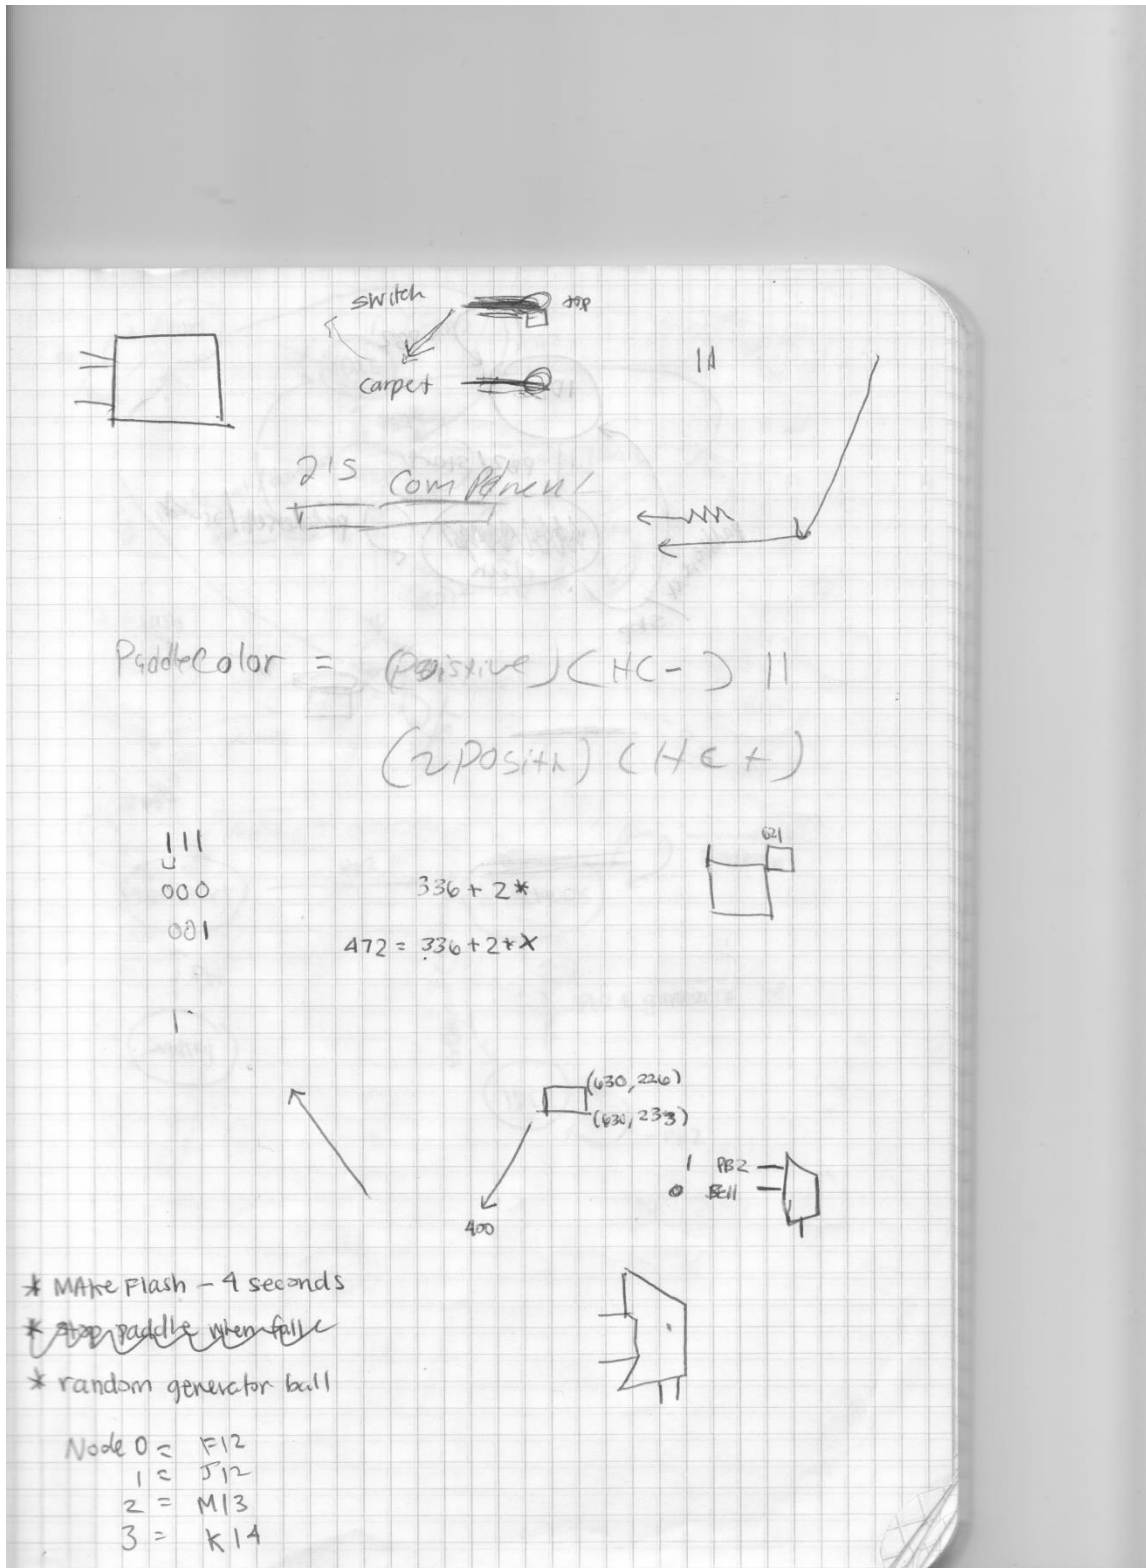 switch top
carpet
11
2's Component
PaddleColor = (Poisitive) (HC-) ||
(~Positiv) (HC+)
111
000
001
621
336 + 2*
472 = 336 + 2*X
1
(630, 226)
(630, 233)
400
1 PB2
0 BC11
* MAke Flash - 4 seconds
* stop paddle when fall
* random generator ball
Node 0 = F12
1 = J12
2 = M13
3 = K14